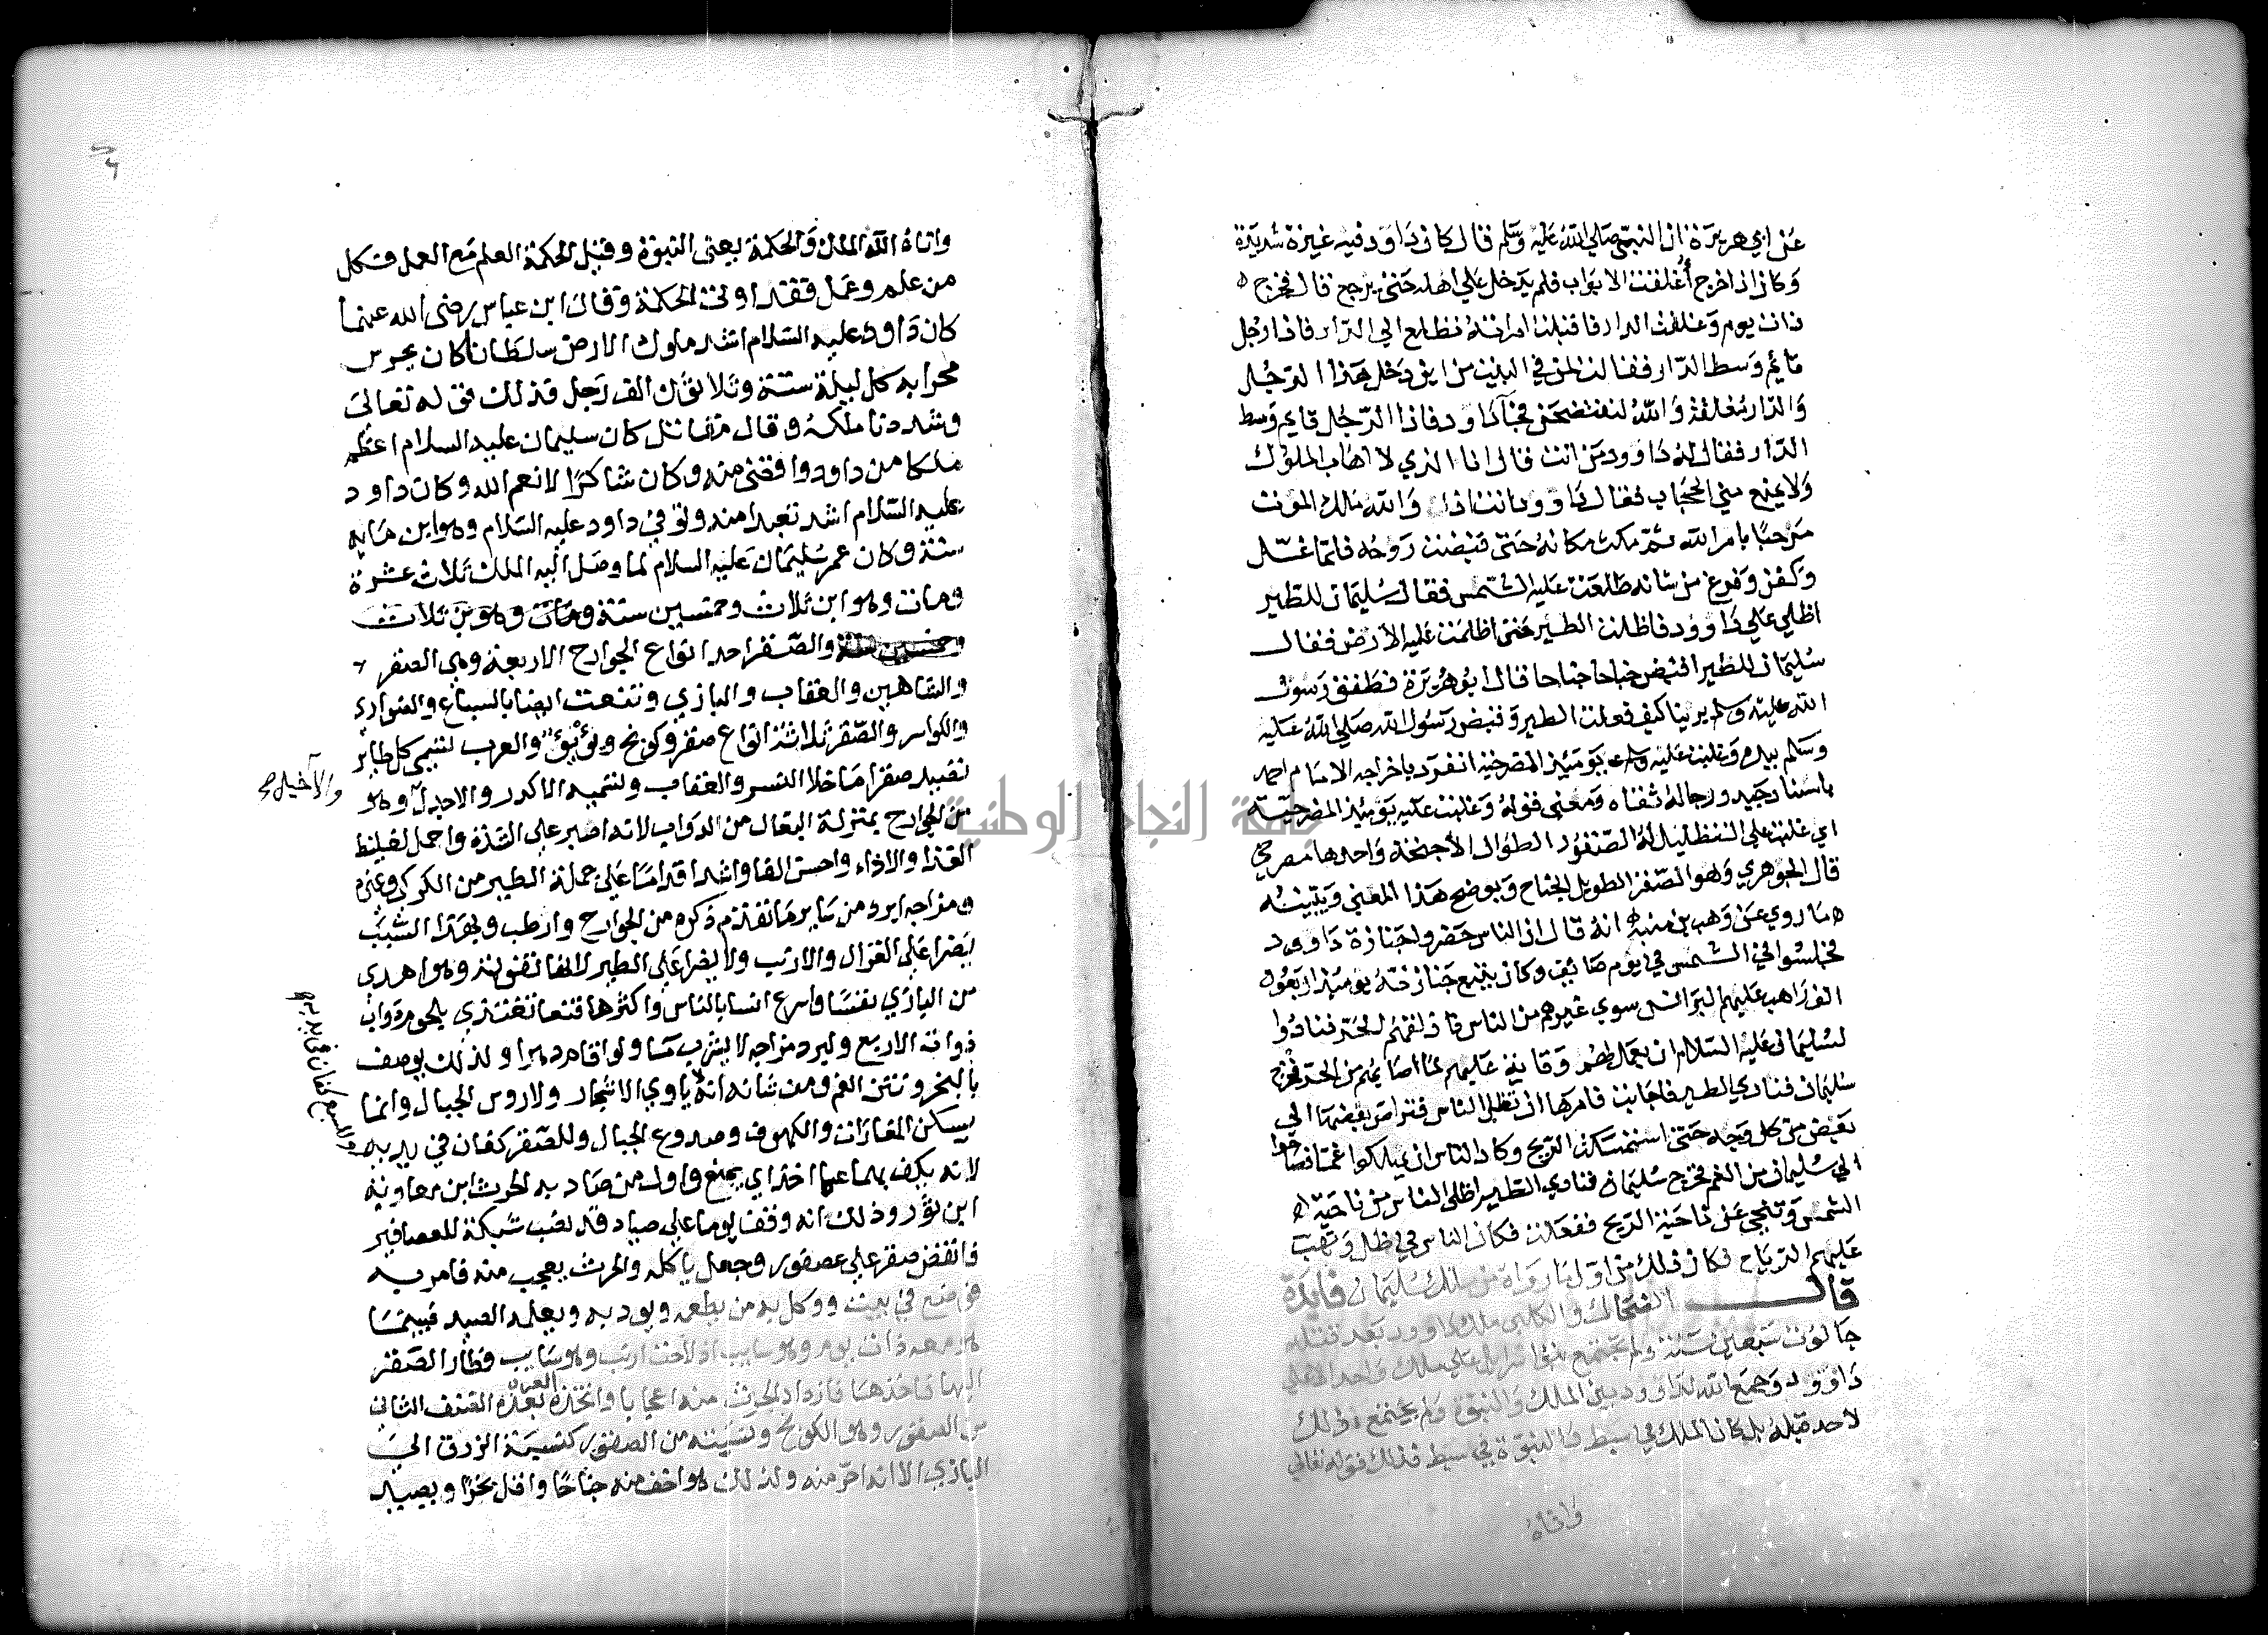 عن ابي هريرة ان النبي صلي الله عليه وسلم قال كان داوود فيه غيرة شديدة
وكان اذا خرج أغلقت الابواب فلم يدخل علي اهله حتي يرجع قال فخرج
ذات يوم وغلقت الدار فاقبلت امراته تطلع الي الدار فاذا رجل
قايم وسط الدار فقالت لمن في البيت من اين دخل هذا الرجل
والدار مغلقة والله لنفتضحن فجآ داود فاذا الرجل قايم وسط
الدار فقال له داوود من انت قال انا الذي لا اهاب الملوك
ولا يمنع مني الحجاب فقال داوود انت اذن والله ملك الموت
مرحبًا بامر الله ثم مكث مكانه حتي قبضت روحه فلما غسل
وكفن وفرغ من شانه طلعت عليه الشمس فقال سليمان للطير
اظلي علي داوود فاظلت الطير حتي اظلمت عليه الارض فقال
سليمان للطير اقبض جناحا جناحا قال ابو هريرة فطفق رسول
الله عليه وسلم يرينا كيف فعلت الطير وقبض رسول الله صلي الله عليه
وسلم بيده وغلبت عليه يوميذ المضرحية انفرد باخراجه الامام احمد
باسناد جيد ورجاله ثقاه ومعني قوله وغلبت عليه يوميذ المضرحية
اي غلبت علي التظليل له الصقور الطوال الاجنحة واحدها مضرحي
قال الجوهري وهو الصقر الطويل الجناح ويوضح هذا المعني ويبينه
ما روي عن وهب بن منبه انه قال ان الناس حضروا جنازة داوود
فجلسوا في الشمس في يوم صايف وكان يتبع جنازته يوميذ اربعون
الف راهب عليهم البرانس سوي غيرهم من الناس فاذلقهم الحر فنادوا
لسليمان عليه السلام ان يعمل لهم وقاية عليهم لما اصابهم من الحر فخرج
سليمان فنادي الطير فاجابت فامرها ان تظل الناس فتراص بعضها الي
بعض من كل وجه حتي استمسكت الريح وكاد الناس ان يهلكوا غما فصاحوا
الي سليمان من الغم فخرج سليمان فنادي الطير اظلي الناس من ناحية
الشمس وتنحي عن ناحية الريح ففعلت فكان الناس في ظل وتهب
عليهم الرياح فكان ذلك من اول ما رواه من ملك سليمان فايدة
قال الضحاك والكلبي ملك داوود بعد قتله
جالوت سبعين سنة ولم يجتمع بنوا اسراييل علي ملك واحد الا علي
داوود وجمع الله لداوود بين الملك والنبوة ولم يجتمع ذلك
لاحد قبله بل كان الملك في سبط والنبوة في سبط فذلك قوله تعالي
واتاه
واتاه الله الملك والحكمة يعني النبوة وقيل الحكمة العلم مع العمل فكل
من علم وعمل فقد اوتي الحكمة وقال ابن عباس رضي الله عنهما
كان داود عليه السلام اشد ملوك الارض سلطانا كان يحرس
محرابه كل ليلة ستة وثلاثون الف رجل فذلك قوله تعالي
وشددنا ملكه وقال مقاتل كان سليمان عليه السلام اعظم
ملكا من داود واقضي منه وكان شاكرًا لانعم الله وكان داود
عليه السلام اشد تعبدا منه وتوفي داود عليه السلام وهو ابن مايه
سنة وكان عمر سليمان عليه السلام لما وصل اليه الملك ثلاث عشرة
ومات وهو ابن ثلاث وخمسين سنة ومات وهو بن ثلاث
وخمسين سنة والصقر احد انواع الجوارح الاربعة وهي الصقر
والشاهين والعقاب والبازي وتنعت ايضا بالسباع والضواري
والكواسر والصقر ثلاثة انواع صقر وكونج ويؤيؤ والعرب تسمي كل طاير
يصيد صقرا ما خلا النسر والعقاب وتسميه الاكدر والاجدل وهو
والآخيل صح
من الجوارح بمنزلة البغال من الدواب لانه اصبر علي الشدة واحمل لغليظ
الغذا والاذاء واحسن الفا واشد اقداما علي جملة الطير من الكركي وغيره
ومزاجه ابرد من ساير ما تقدم ذكره من الجوارح وارطب وبهذا السبب
يضرا علي الغزال والارنب ولا يضرا علي الطير لانها تفوته وهو اهدي
من البازي نفسًا واسرع انسا بالناس واكثرها قنعا تغتذي بلحوم دواب
ذوات الاربع ولبرد مزاجه لا يشرب مآ ولو اقام دهرا ولذلك يوصف
بالبخر ونتن الفم ومن شانه انه لا ياوي الاشجار ولا روس الجبال وانما
يسكن المغارات والكهوف وصدوع الجبال وللصقر كفان في يديه
وللسبع كفان في يديه
لانه يكف بهما عما اخذ اي يمنع واول من صاد به الحرث ابن معاوية
ابن ثور وذلك انه وقف يوما علي صياد قد نصب شبكة للعصافير
فانقض صقر علي عصفور وجعل ياكله والحرث يعجب منه فامر به
فوضع في بيت ووكل به من يطعمه ويودبه ويعلمه الصيد فبينما
هو معه ذات يوم وهو سايب اذ لاحت ارنب وهو سايب فطار الصقر
اليها فاخذها فازداد الحرث منه اعجابا واتخذه العرب بعده الصنف الثاني
من الصقور وهو الكونج ونسبته من الصقور كنسبة الزرق الي
البازي الا انه احر منه ولذلك هو اخف منه جناحًا واقل بخرًا ويصيد